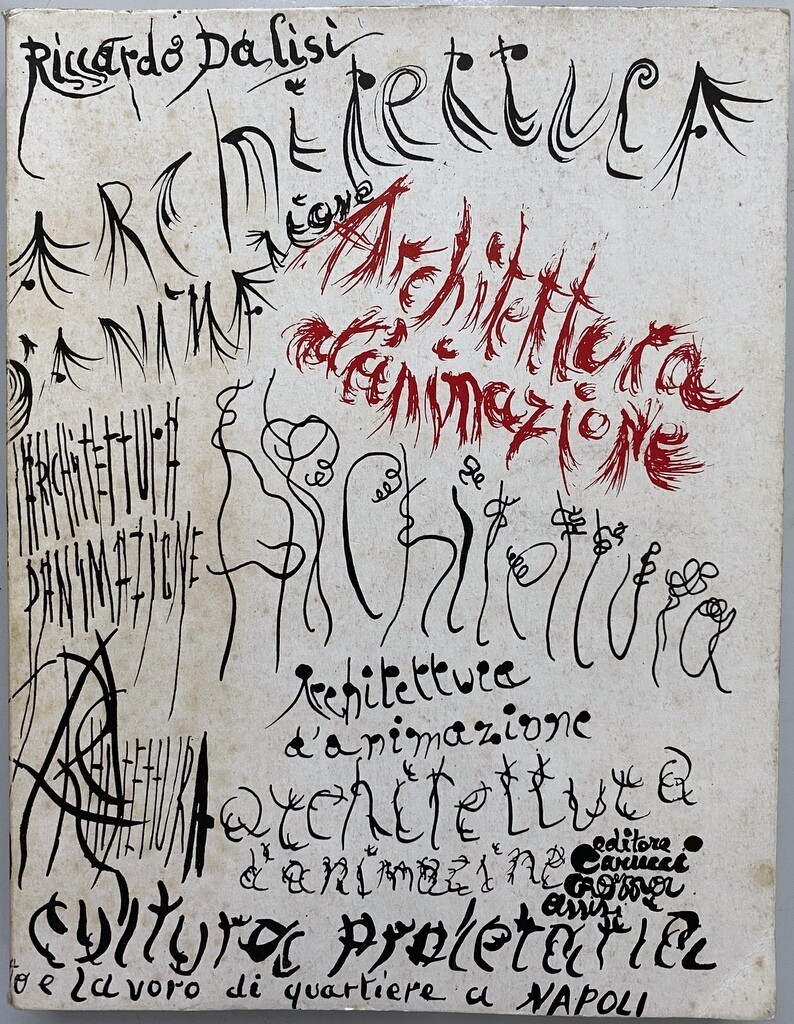 Riccardo Dalisi
Architettura
d'animazione
Architettura
d'animazione
ARCHITETTURA
D'ANIMAZIONE
Architettura
Architettura
d'animazione
ARCHITETTURA
architettura
d'animazione
editore
Carucci
Roma
Assisi
cultura proletaria
e lavoro di quartiere a NAPOLI